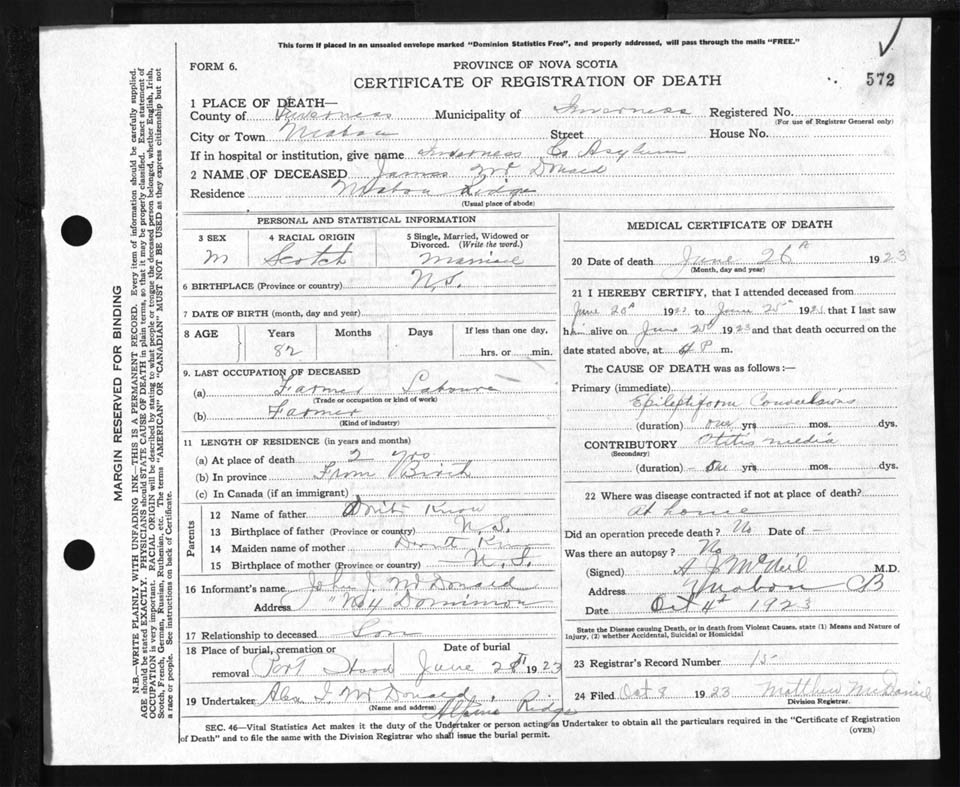 This form if placed in an unsealed envelope marked "Dominion Statistics Free", and properly addressed, will pass through the mails "FREE."
FORM 6.
PROVINCE OF NOVA SCOTIA
CERTIFICATE OF REGISTRATION OF DEATH
572
1 PLACE OF DEATH—
County of Inverness Municipality of Inverness Registered No.
(For use of Registrar General only)
City or Town Mabou Street House No.
If in hospital or institution, give name Inverness Co Asylum
2 NAME OF DECEASED James Mc Donald
Residence Mabou Ridge
(Usual place of abode)
PERSONAL AND STATISTICAL INFORMATION
3 SEX 4 RACIAL ORIGIN 5 Single, Married, Widowed or Divorced. (Write the word.)
M Scotch Married
6 BIRTHPLACE (Province or country) N.S.
7 DATE OF BIRTH (month, day and year)
8 AGE Years Months Days If less than one day,
82 hrs. or min.
9. LAST OCCUPATION OF DECEASED
(a) Farmer Labourer
(Trade or occupation or kind of work)
(b) Farmer
(Kind of industry)
11 LENGTH OF RESIDENCE (in years and months)
(a) At place of death 2 yrs
(b) In province From Birth
(c) In Canada (if an immigrant)
Parents
12 Name of father Don't Know
13 Birthplace of father (Province or country) N.S.
14 Maiden name of mother Don't Know
15 Birthplace of mother (Province or country) N.S.
16 Informant's name John J. McDonald
Address No 4 Dominion
17 Relationship to deceased Son
18 Place of burial, cremation or removal Date of burial
Port Hood June 28 1923
19 Undertaker Alex J. McDonald,
(Name and address) Alpine Ridge
MEDICAL CERTIFICATE OF DEATH
20 Date of death June 26 1923
(Month, day and year)
21 I HEREBY CERTIFY, that I attended deceased from
June 1923 to June 25 1923 that I last saw
h alive on June 25 1923 and that death occurred on
date stated above, at 4 P m.
The CAUSE OF DEATH was as follows:—
Primary (immediate)
Epileptiform Convulsions
(duration) one yrs mos. dys.
CONTRIBUTORY Otitis media
(Secondary)
(duration) One yrs mos. dys.
22 Where was disease contracted if not at place of death?
At home
Did an operation precede death? No Date of —
Was there an autopsy? No
(Signed) A J McNeil M.D.
Address Mabou CB
Date Oct 4 1923
State the Disease causing Death, or in death from Violent Causes, state (1) Means and Nature of
Injury, (2) whether Accidental, Suicidal or Homicidal
23 Registrar's Record Number 15
24 Filed Oct 8 1923 Matthew McDaniel
Division Registrar.
SEC. 46—Vital Statistics Act makes it the duty of the Undertaker or person acting as Undertaker to obtain all the particulars required in the "Certificate of Registration
of Death" and to file the same with the Division Registrar who shall issue the burial permit.
(OVER)
MARGIN RESERVED FOR BINDING
N.B.—WRITE PLAINLY WITH UNFADING INK—THIS IS A PERMANENT RECORD. Every item of information should be carefully supplied.
AGE should be stated EXACTLY. PHYSICIANS should STATE CAUSE OF DEATH in plain terms, so that it may be properly classified. Exact statement of
OCCUPATION is very important. RACIAL ORIGIN will be described by stating to what people or tongue the deceased person belonged, whether English, Irish,
Scotch, French, German, Russian, Ruthenian, etc. The terms "AMERICAN" or "CANADIAN" MUST NOT BE USED as they express citizenship but not
a race or people. See instructions on back of Certificate.